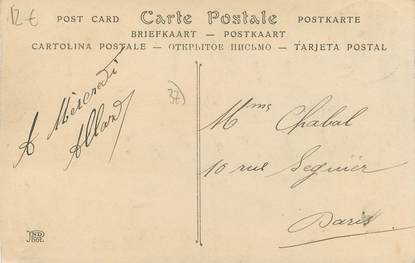 12€
POST CARD Carte Postale POSTKARTE
BRIEFKAART — POSTKAART
CARTOLINA POSTALE — ОТКРЫТОЕ ПИСЬМО — TARJETA POSTAL
A Mercredi
Allard
37
Mme Chabal
10 rue Séguier
Paris
ND
PHOT.